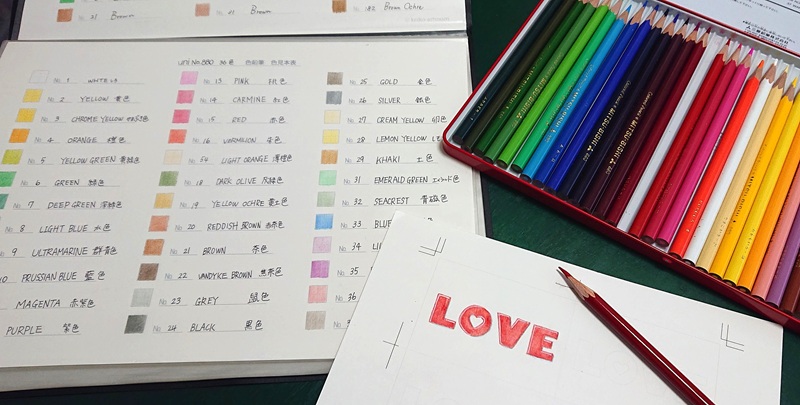 No. 21 Brown
No. 41 Brown
No. 42 Brown Ochre
uni No.880 36色 色鉛筆 色見本表
No. 1 WHITE 白
No. 2 YELLOW 黄色
No. 3 CHROME YELLOW
No. 4 ORANGE 橙色
No. 5 YELLOW GREEN 黄緑色
No. 6 GREEN 緑色
No. 7 DEEP GREEN 深緑色
8 LIGHT BLUE 水色
9 ULTRAMARINE 群青色
10 PRUSSIAN BLUE 藍色
MAGENTA 赤紫色
PURPLE 紫色
No. 13 PINK 桃色
No. 14 CARMINE 紅色
No. 15 RED 赤色
No. 16 VERMILION 朱色
No. 54 LIGHT ORANGE 薄橙色
No. 18 DARK OLIVE
No. 19 YELLOW OCHRE 黄土色
No. 20 REDDISH BROWN 赤茶色
No. 21 BROWN 茶色
No. 22 VANDYKE BROWN 焦茶色
No. 23 GREY 鼠色
No. 24 BLACK 黒色
No. 25 GOLD 金色
No. 26 SILVER 銀色
No. 27 CREAM YELLOW
No. 28 LEMON YELLOW
No. 29 KHAKI 土色
No. 31 EMERALD GREEN エメラルド色
No. 32 SEACREST 青磁色
No. 33 BLUE
No. 34 LI
No. 35
No. 36
MITSU-BISHI
LOVE